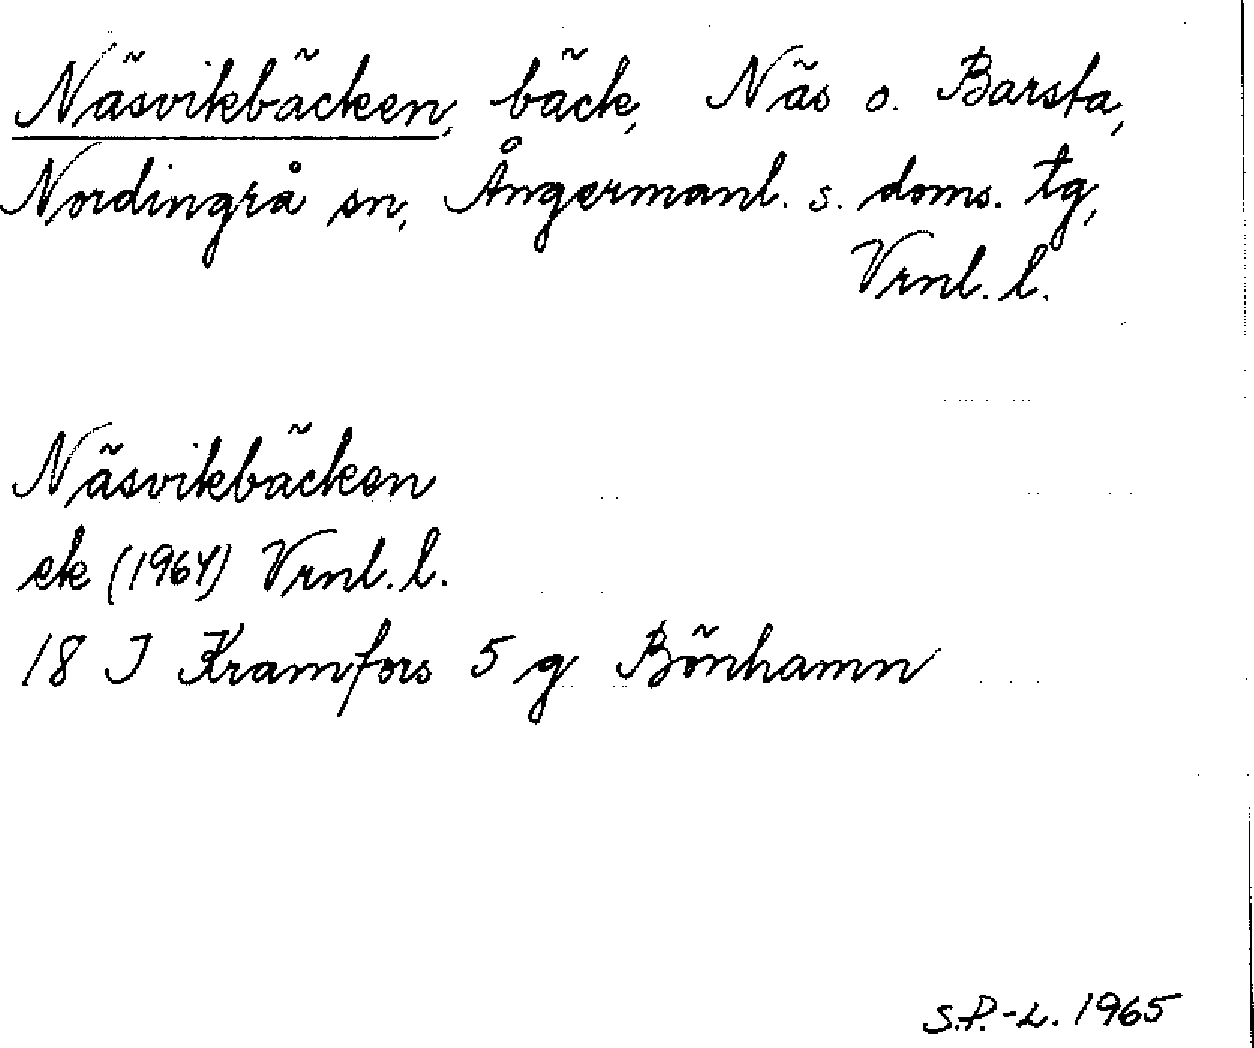 Näsvikbäcken, bäck, Näs o. Barsta,
Nordingrå sn, Ångermanl. s. doms. tg,
Vrnl. l.
Näsvikbäcken
ek (1964) Vrnl. l.
18 J Kramfors 5 g Bönhamn
S.P.-L. 1965